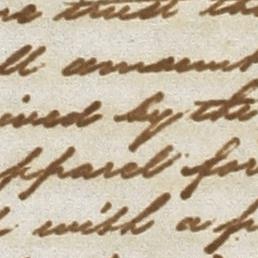 re trust th
ll amount
ived by the
pparel for
d with a p